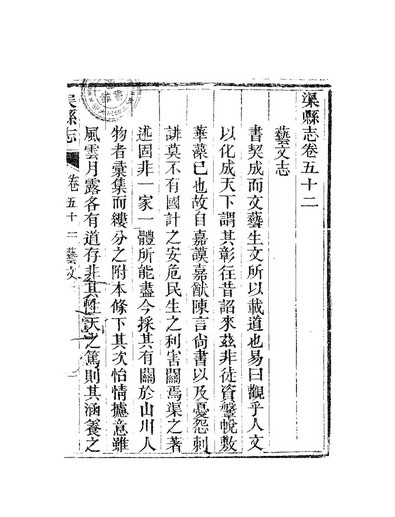 渠縣志卷五十二
藝文志
書契成而文藝生文所以載道也易曰觀乎人文
以化成天下謂其彰往昔詔來茲非徒資鞶帨敷
華藻已也故自嘉謨嘉猷陳言尚書以及憂怨刺
誹莫不有國計之安危民生之利害關焉渠之著
述固非一家一體所能盡今採其有關於山川人
物者彙集而縷分之附本條下其次怡情攄意雖
風雲月露各有道存非其性天之篤則其涵養之
渠縣志
卷五十二 藝文